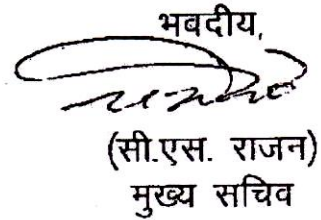 भवदीय,
(सी.एस. राजन)
मुख्य सचिव